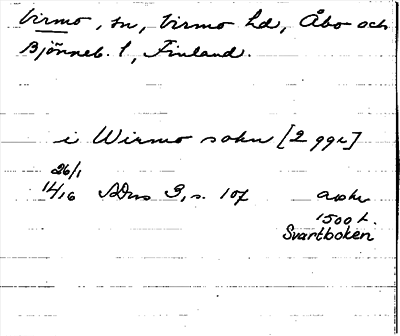 Virmo, sn, Virmo hd, Åbo och
Björneb. l, Finland.
i Wirmo sokn [2 ggr]
26/1
1416 ADns 3, s. 107 avskr
1500 t.
Svartboken